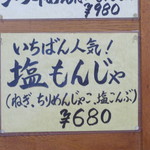 ¥980
いちばん人気!
塩もんじゃ
(ねぎ、ちりめんじゃこ、塩こんぶ)
¥680